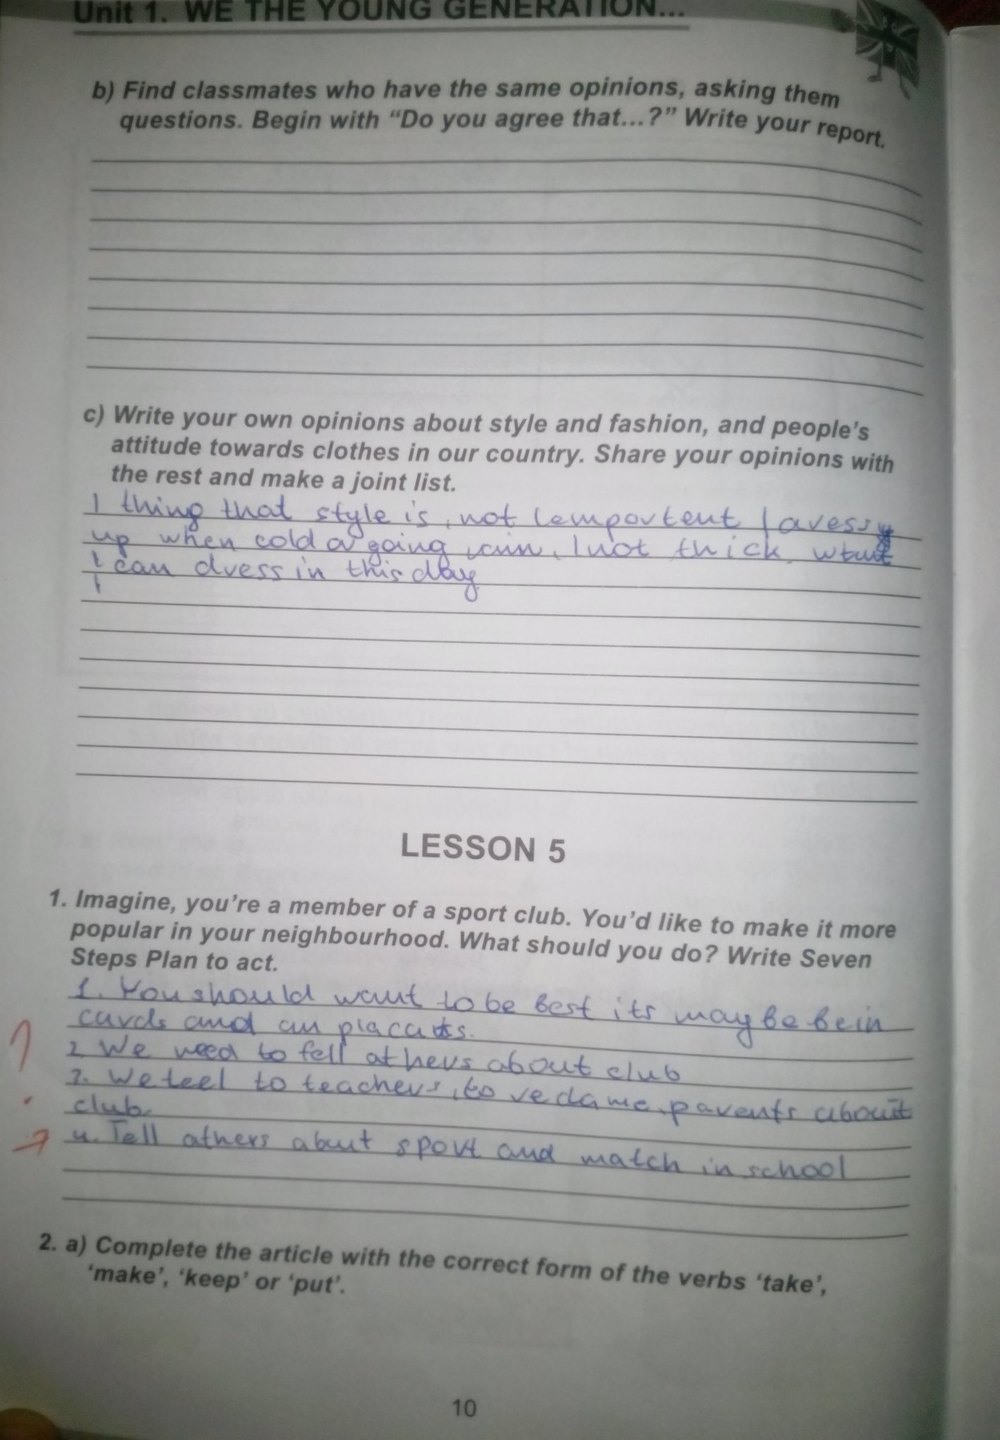 Unit 1. WE THE YOUNG GENERATION...
b) Find classmates who have the same opinions, asking them
questions. Begin with “Do you agree that...?” Write your report.
c) Write your own opinions about style and fashion, and people’s
attitude towards clothes in our country. Share your opinions with
the rest and make a joint list.
I thing that style is not
up when cold or going rain, I not thick what
I can dress in this day
LESSON 5
1. Imagine, you’re a member of a sport club. You’d like to make it more
popular in your neighbourhood. What should you do? Write Seven
Steps Plan to act.
1. You should want to be best its may be be in
cards and an placats.
2 We need to fell athers about club
3. We teel to teachers, to parents about
club.
4. Tell athers about sport and match in school
2. a) Complete the article with the correct form of the verbs ‘take’,
‘make’, ‘keep’ or ‘put’.
10